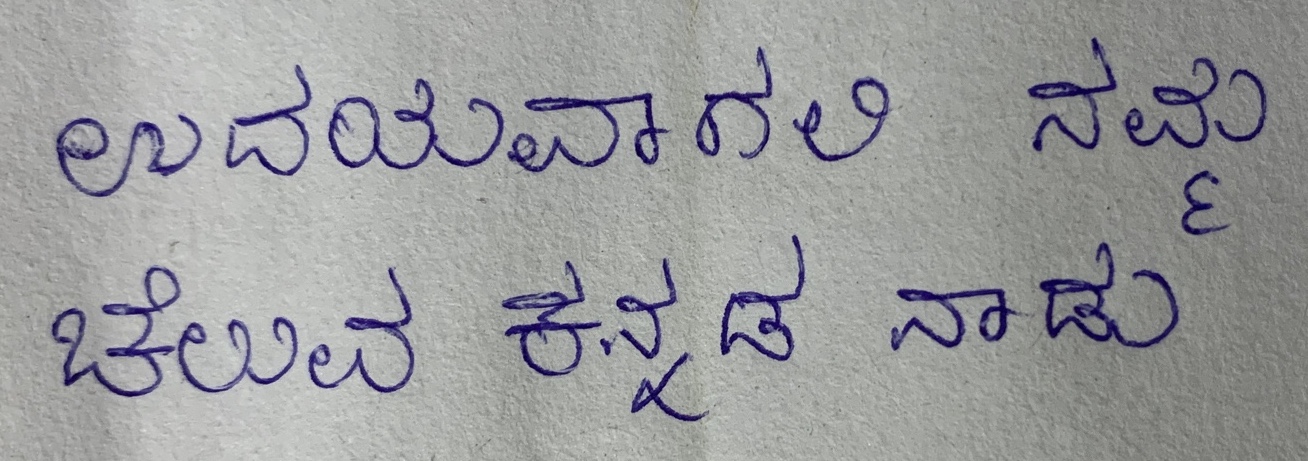 ಉದಯವಾಗಲಿ ನಮ್ಮ
ಚೆಲುವ ಕನ್ನಡ ನಾಡು